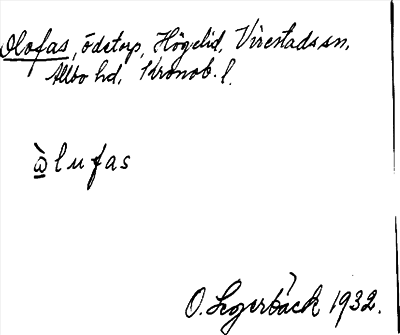 Olofas, ödetorp, Högelid, Virestads sn,
Allbo hd, Kronob. l.
ὼlufas
O. Segerbäck 1932.